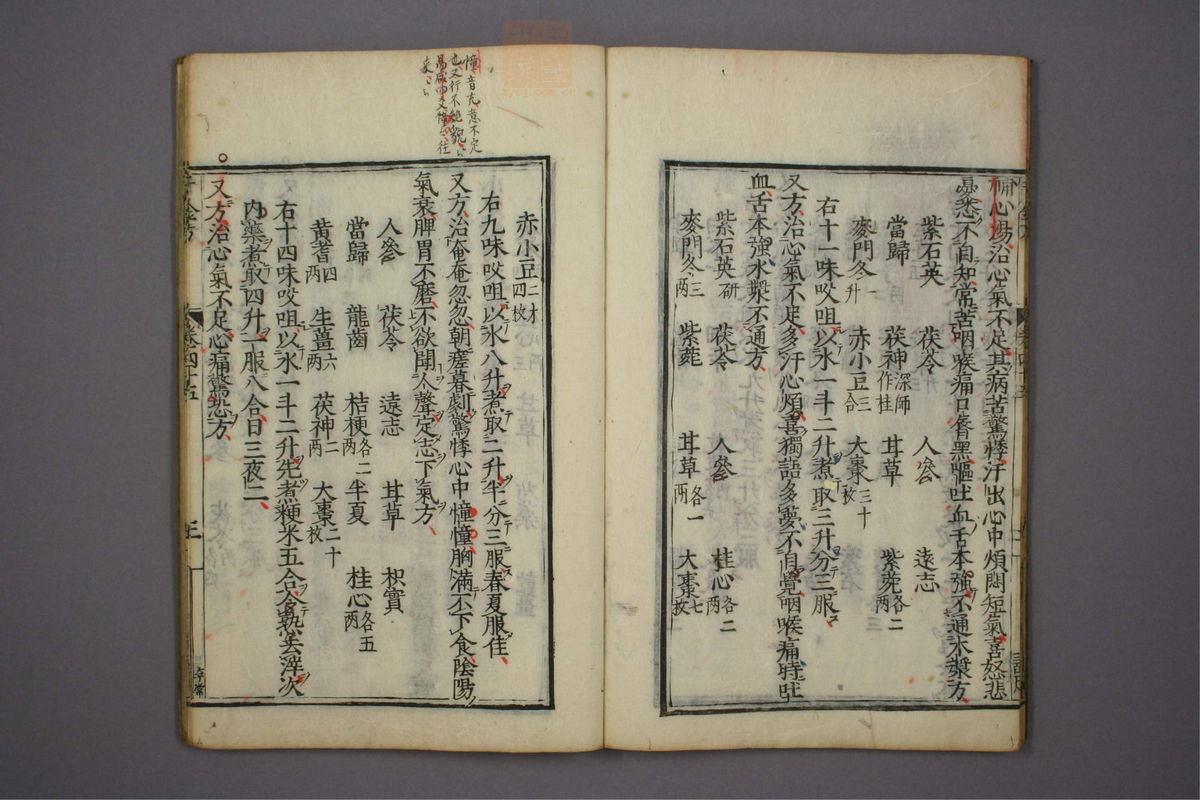 補心湯治心氣不足其病苦驚悸汗出心中煩悶短氣喜怒悲
憂悉不自知常苦咽喉痛口脣黑嘔吐血舌本強不通水漿方
紫石英 茯苓 人參 遠志
當歸 茯神深師作桂 茸草 紫菀各二兩
麥門冬一升 赤小豆三合 大棗三十枚
右十一味㕮咀以水一斗二升煮取三升分三服
又方治心氣不足多汗心煩喜獨語多夢不自覺咽喉痛時吐
血舌本強水漿不通方
紫石英研 茯苓 人參 桂心各二兩
麥門冬三兩 紫菀 茸草各一兩 大棗七枚
赤小豆二十四枚
右九味㕮咀以水八升煮取二升半分三服春夏服佳
又方治奄奄忽忽朝瘥暮劇驚悸心中憧憧胸滿不下食陰陽
氣衰脾胃不磨不欲聞人聲定志下氣方
人參 茯苓 遠志 茸草 枳實
當歸 龍齒 桔梗各二兩 半夏 桂心各五兩
黃耆四兩 生薑六兩 茯神二兩 大棗二十枚
右十四味㕮咀以水一斗二升先煮粳米五合令熟去滓次
內藥煮取四升一服八合日三夜二
又方治心氣不足心痛驚恐方
憧音充意不定
也又行不絕貌
往
來
千金方
卷四十五
二